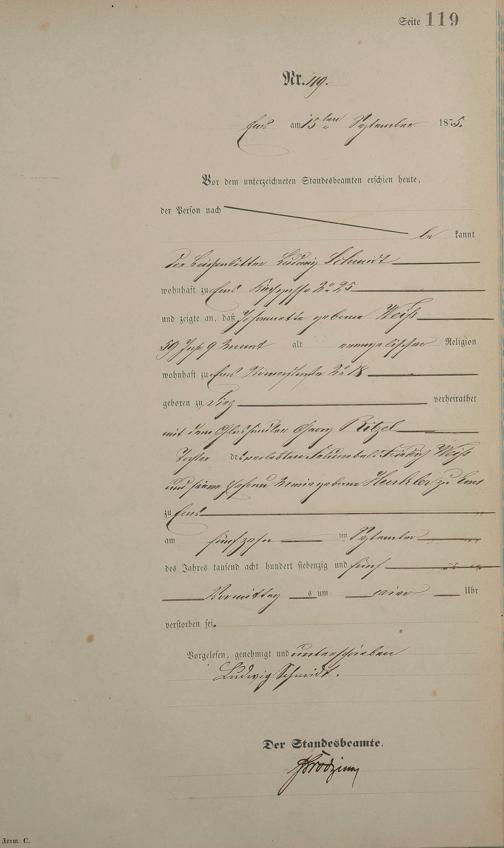 Seite 119
Nr. 119.
Ems am 15ten September 1875.
Vor dem unterzeichneten Standesbeamten erschien heute,
der Person nach
be kannt
der Ludwig Schmidt
wohnhaft zu Ems No 25
und zeigte an, daß Johannette geborne Weiß
59 Jahr 9 Monat alt evangelischer Religion
wohnhaft zu Ems No 18
geboren zu verheirathet
mit dem Georg Ritzel
Tochter des verlebten Friedrich Weiß
und seiner geborne zu Ems
zu Ems
am fünfzehn ten September
des Jahres tausend acht hundert siebenzig und fünf
Vormittag s um vier Uhr
verstorben sei.
Vorgelesen, genehmigt und unterschrieben
Ludwig Schmidt.
Der Standesbeamte.
Form. C.